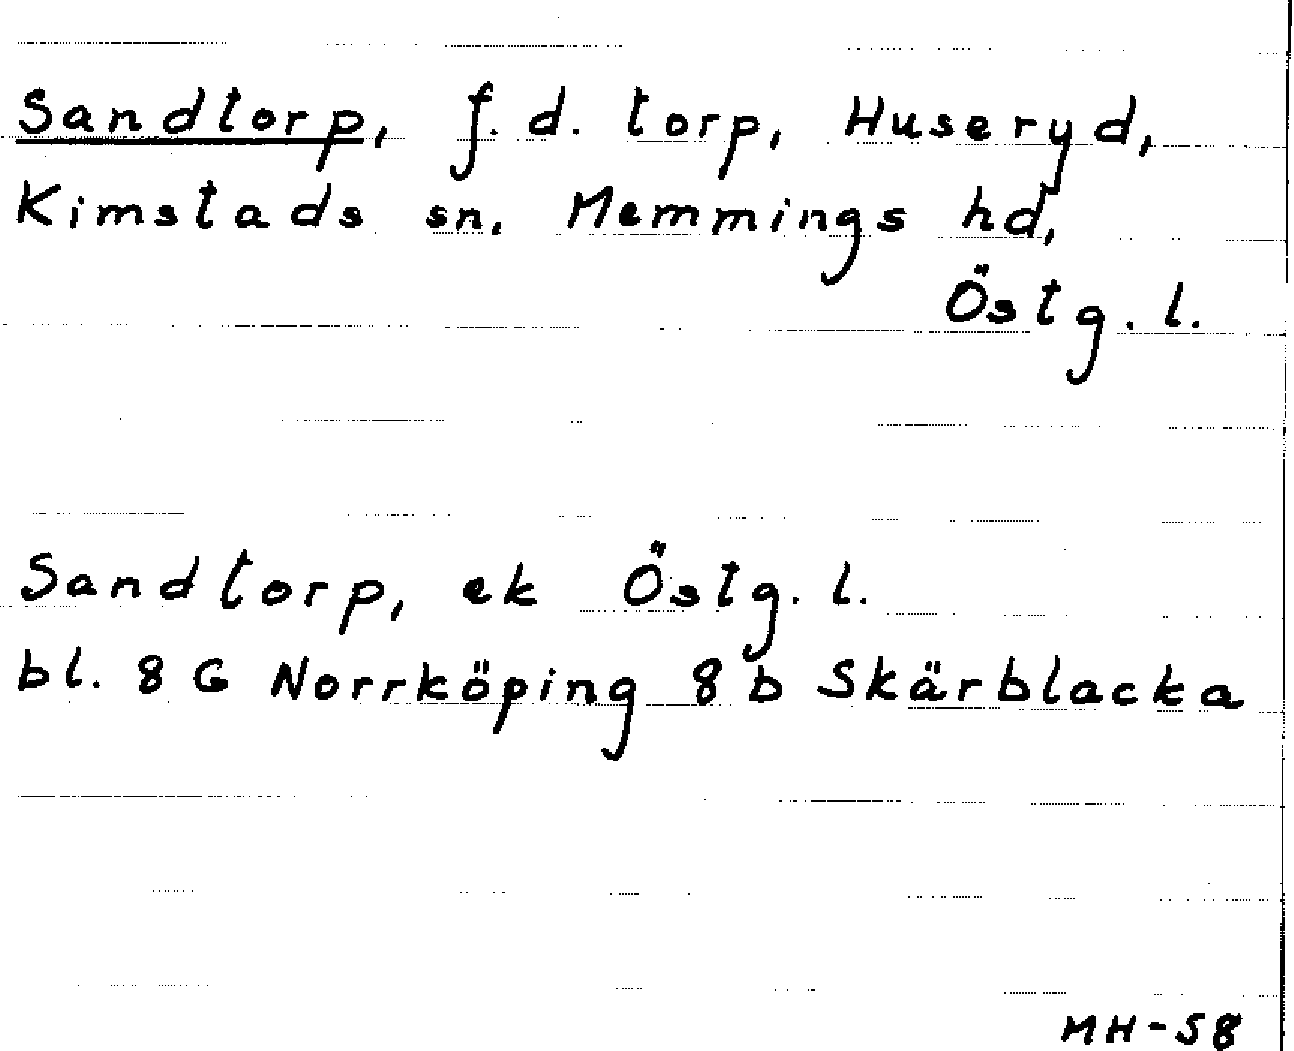 Sandtorp, f.d. torp, Huseryd,
Kimstads sn. Memmings hd,
Östg. l.
Sandtorp, ek Östg. l.
bl. 8 G Norrköping 8 b Skärblacka
MH-58